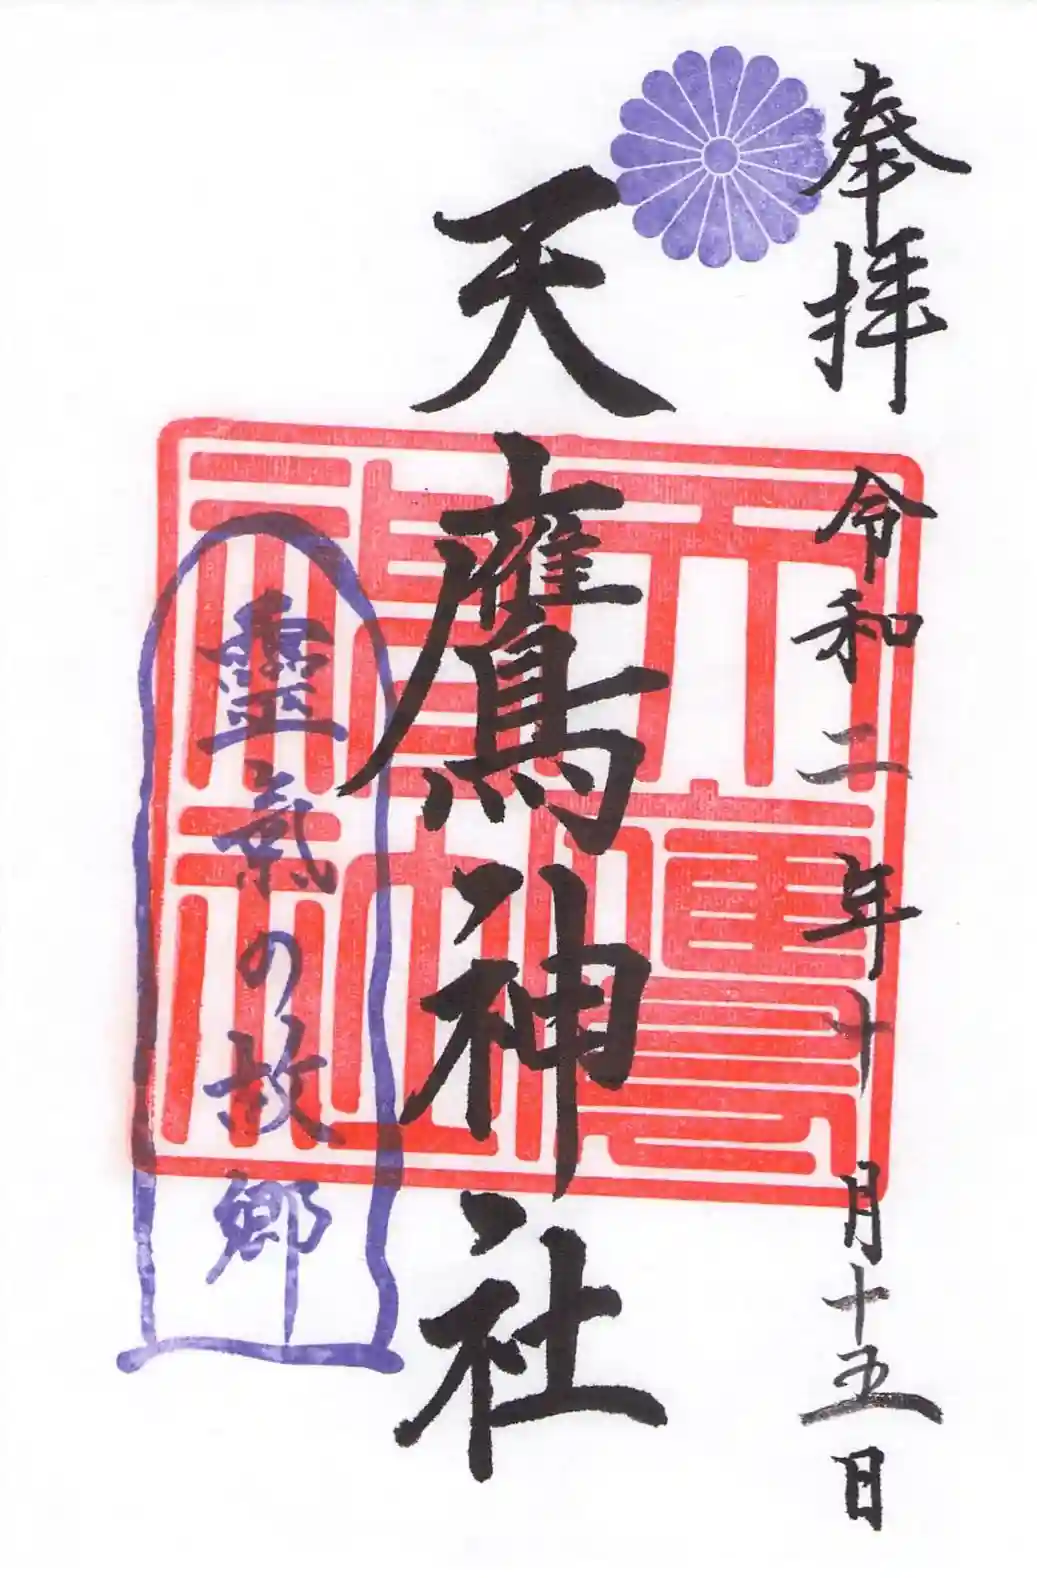 奉拝
令和二年十月十五日
天鷹神社
靈氣の故郷